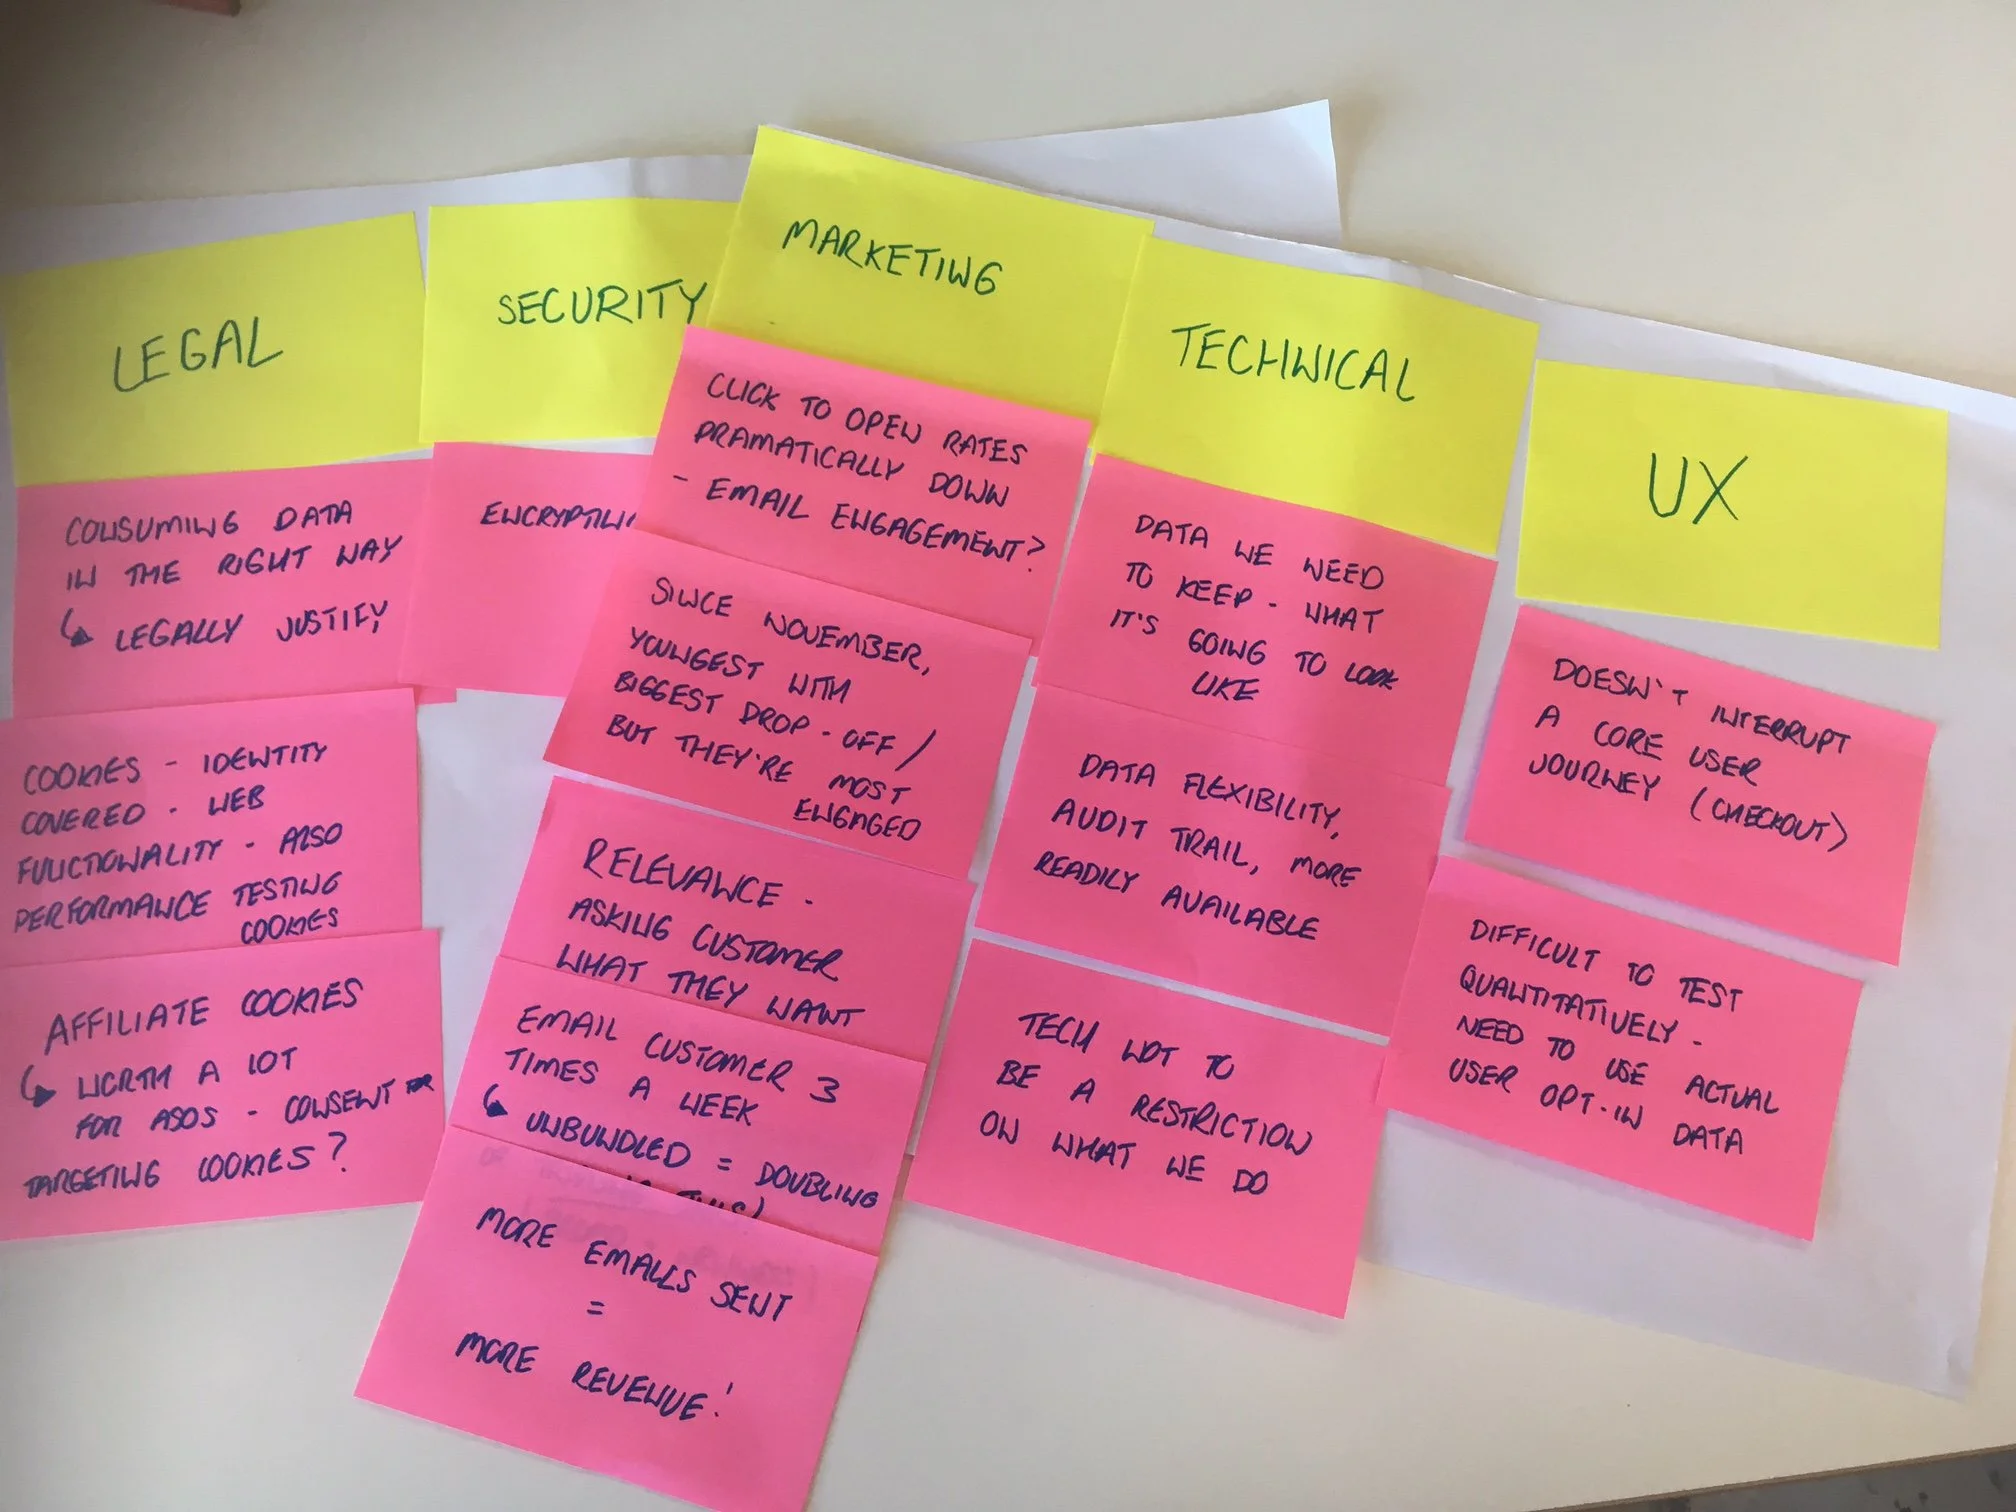 LEGAL
CONSUMING DATA
IN THE RIGHT WAY
↳ LEGALLY JUSTIFY
COOKIES - IDENTITY
COVERED - WEB
FUNCTIONALITY - ALSO
PERFORMANCE TESTING
COOKIES
AFFILIATE COOKIES
↳ WORTH A LOT
FOR ASOS - CONSENT FOR
TARGETING COOKIES?
SECURITY
MARKETING
CLICK TO OPEN RATES
DRAMATICALLY DOWN
- EMAIL ENGAGEMENT?
SINCE NOVEMBER,
YOUNGEST WITH
BIGGEST DROP-OFF /
BUT THEY'RE MOST
ENGAGED
RELEVANCE -
ASKING CUSTOMER
WHAT THEY WANT
EMAIL CUSTOMER 3
TIMES A WEEK
↳ UNBUNDLED = DOUBLING
THIS)
MORE EMAILS SENT
=
MORE REVENUE!
TECHNICAL
DATA WE NEED
TO KEEP - WHAT
IT'S GOING TO LOOK
LIKE
DATA FLEXIBILITY,
AUDIT TRAIL, MORE
READILY AVAILABLE
TECH NOT TO
BE A RESTRICTION
ON WHAT WE DO
UX
DOESN'T INTERRUPT
A CORE USER
JOURNEY (CHECKOUT)
DIFFICULT TO TEST
QUANTITATIVELY -
NEED TO USE ACTUAL
USER OPT-IN DATA